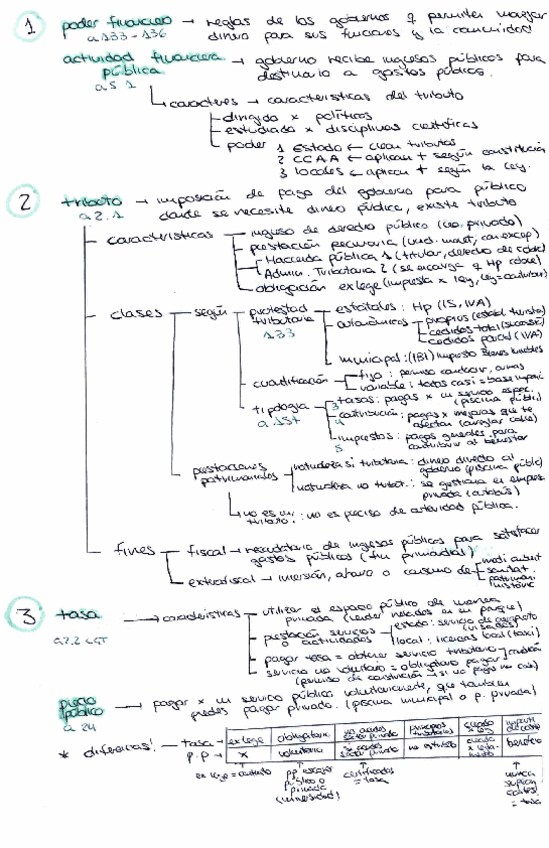 1 poder financiero → reglas de los gobiernos q permiten manejar
a 133 - 136 dinero para sus funciones y la comunidad
actividad financiera → gobierno recibe ingresos públicos para
pública destinarlo a gastos públicos.
a 5 1
caracteres → características del tributo
dirigido x políticos
estudiado x disciplinas científicas
poder 1 Estado ← crean tributos
2 CCAA ← aplican + según constitución
3 locales ← aplican + según la ley.
2 tributo → imposición de pago del gobierno para público
a 2.1 donde se necesite dinero público, existe tributo
características ingreso de derecho público (no privado)
prestación pecuniaria
Hacienda pública 1 (titular, derecho de
Admin. Tributaria 2 (se encarga q Hp cobre)
obligación ex lege (impuesta x ley,
clases según potestad tributaria estatales: Hp (IS, IVA)
133 autonómicos propios
cedidos total
cedidos parcial (IVA)
municipal: (IBI) impuesto bienes inmuebles
cuantificación fijo: permiso conducir, armas
variable: todos casi = base
tipología 3 tasas: pagas x un servicio espec. (piscina públic)
a 157 4 contribución: pagas x mejoras que te afectan (arreglar calle)
5 impuestos: pagos generales para contribuir al bienestar
prestaciones patrimoniales naturaleza si tributaria: dinero directo al gobierno (piscina públic)
naturaleza no tribut.: se gestiona en empresa privada (autobús)
no es un tributo: no es preciso de actividad pública.
fines fiscal → recaudatorio de ingresos públicos para satisfacer
gastos públicos (fin primordial)
extrafiscal → inversión, ahorro o consumo de medi ambient
sanitat
3 tasa → características utilizar el espacio público de manera
a 2.2 LGT privada (vender helados en un parque)
prestación servicios o actividades estado: servicio de aeropuerto
local: licencias local (taxi)
pagar tasa = obtener servicio tributario
servicio no voluntario = obligatorio pagar
precio público → pagar x un servicio público voluntariamente, que también
a 24 puedes pagar privado. (piscina municipal o p. privada)
* diferencias: tasa → ex lege obligatoria no ajeno sector privado principios tributarios
p.p → x voluntario no estricto beneficio
ex lege = pp escoger público o privado (universidad) certificados = tasa nunca = tasa